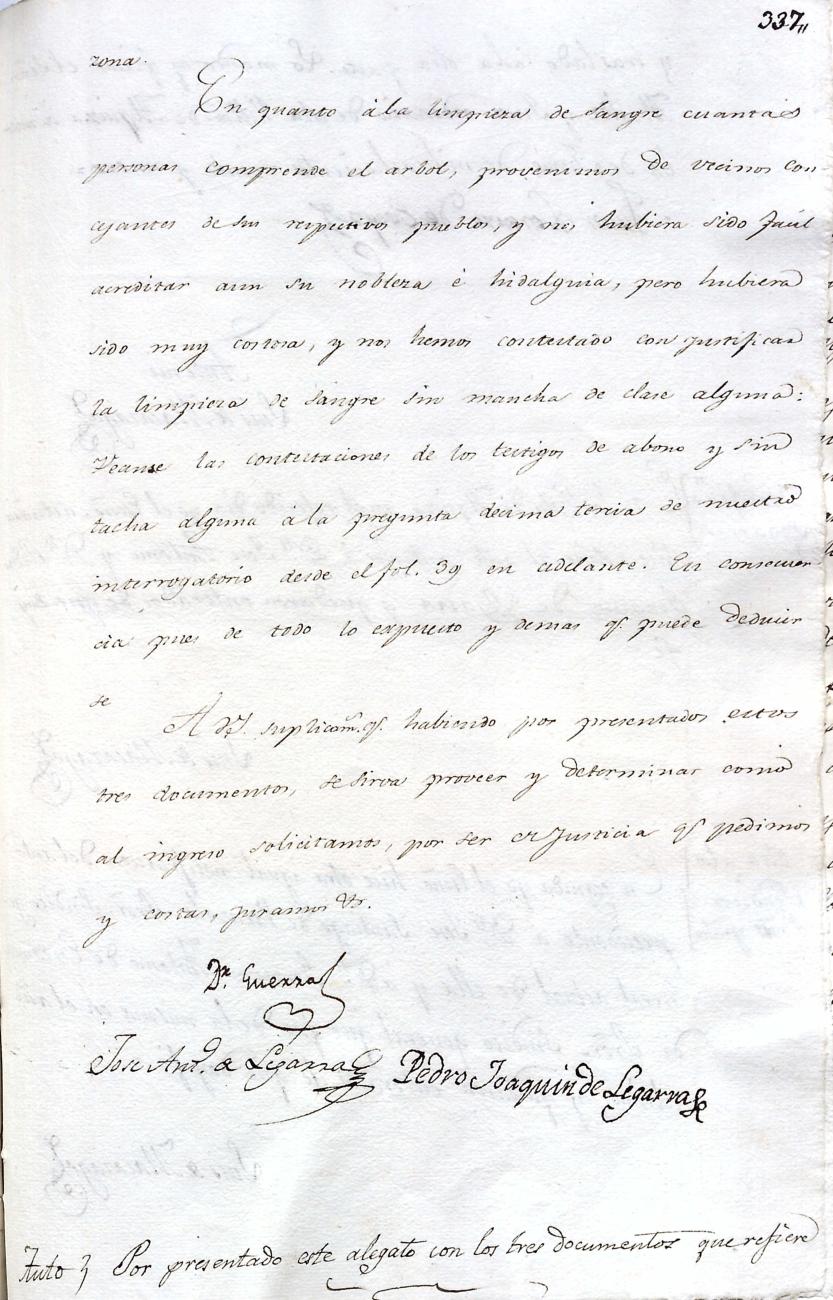 337,,
zona.
En quanto à la limpieza de sangre cuantas
personas comprende el arbol, provenimos de vecinos con-
cejantes de sus respectivos pueblos, y nos hubiera sido facil
acreditar aun su nobleza è hidalguia, pero hubiera
sido muy costosa, y nos hemos contestado con justificar
la limpieza de sangre sin mancha de clase alguna:
Veanse las contestaciones de los testigos de abono y sin
tacha alguna à la pregunta decima tercia de nuestro
interrogatorio desde el fol. 39 en adelante. En consecuen
cia pues de todo lo expuesto y demas q.e puede deducir
se
A V.S. suplicam.s q.e habiendo por presentados estos
tres documentos, se sirva proveer y determinar como
al ingreso solicitamos, por ser de Justicia q.e pedimos
y costas, juramos &c.
D.r Guerra
Jose Ant.o de Legarra Pedro Joaquin de Legarra
Auto } Por presentado este alegato con los tres documentos que refiere